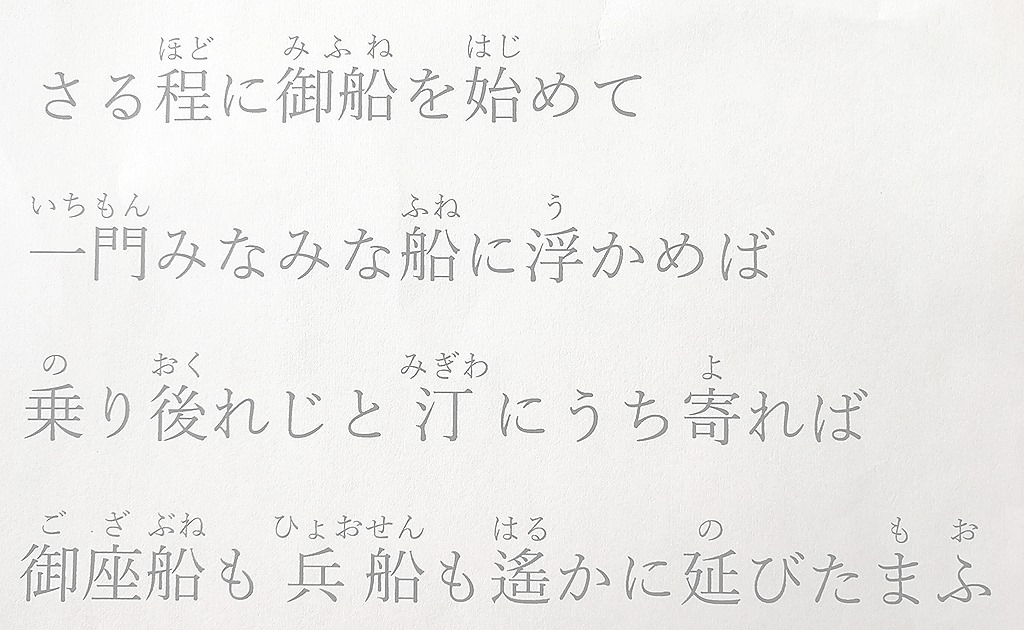 ほど みふね はじ
さる程に御船を始めて
いちもん ふね う
一門みなみな船に浮かめば
の おく みぎわ よ
乗り後れじと汀にうち寄れば
ござぶね ひょおせん はる の も お
御座船も兵船も遙かに延びたまふ